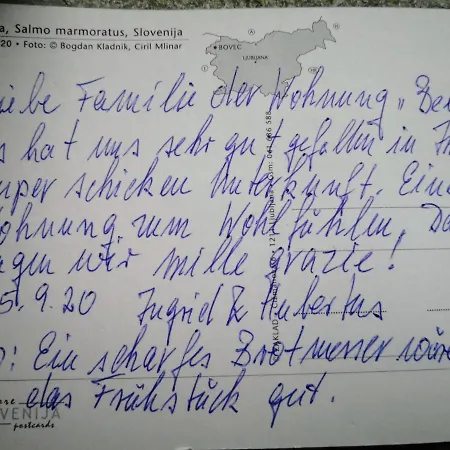 a, Salmo marmoratus, Slovenija
20 • Foto: © Bogdan Kladnik, Ciril Mlinar
BOVEC
LJUBLJANA
A
I
H
iebe Familie der Wohnung „Be
s hat uns sehr gut gefallen in
uper schicken Unterkunft. Eine
ohnung zum Wohlfühlen. Da
agen wir mille grazie!
5.9.20 Ingrid & Hubertus
: Ein scharfes Brotmesser wäre
das Frühstück gut.
VENIJA
postcards